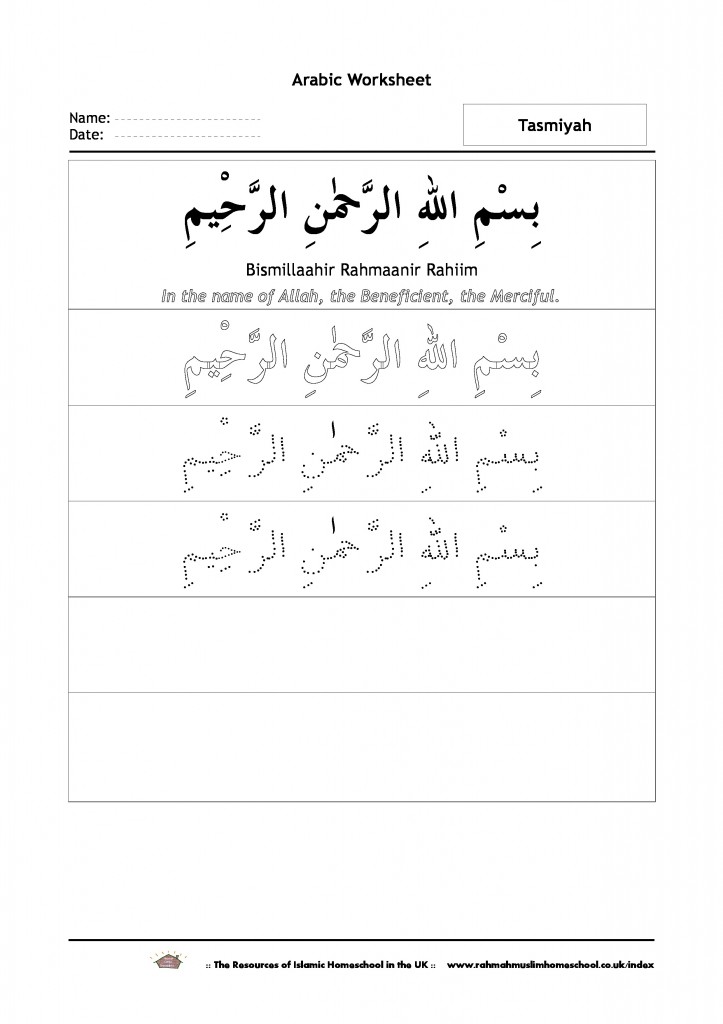 Arabic Worksheet
Name:
Date:
Tasmiyah
بِسْمِ اللّٰهِ الرَّحْمٰنِ الرَّحِيْمِ
Bismillaahir Rahmaanir Rahiim
In the name of Allah, the Beneficient, the Merciful.
بِسْمِ اللّٰهِ الرَّحْمٰنِ الرَّحِيْمِ
بِسْمِ اللّٰهِ الرَّحْمٰنِ الرَّحِيْمِ
بِسْمِ اللّٰهِ الرَّحْمٰنِ الرَّحِيْمِ
:: The Resources of Islamic Homeschool in the UK :: www.rahmahmuslimhomeschool.co.uk/index